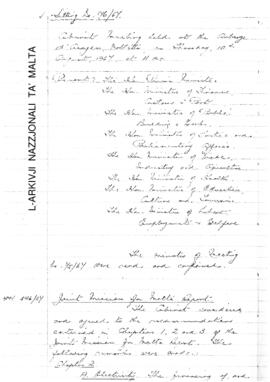 Sitting No. 46/67.
Cabinet Meeting held at the Auberge
d'Aragon, Valletta, on Thursday, 10th
August, 1967 at 11 a.m.
Present: The Hon. Prime Minister
The Hon. Minister of Finance
Customs & Port
The Hon. Minister of Public
Building & Works
The Hon. Minister of Justice and
Parliamentary Affairs
The Hon. Minister of Trade
Industry and Agriculture
The Hon. Minister of Health
The Hon. Minister of Education
Culture and Tourism
The Hon. Minister of Labour
Employment & Welfare
The minutes of Meeting
No. 45/67 were read and confirmed.
Joint Mission for Malta Report
The Cabinet considered
and agreed to the recommendations
contained in Chapters 1, 2 and 3 of the
Joint Mission for Malta Report. The
following remarks were made:
Chapter 2
Electricity. The processing of and
L-ARKIVJI NAZZJONALI TA' MALTA